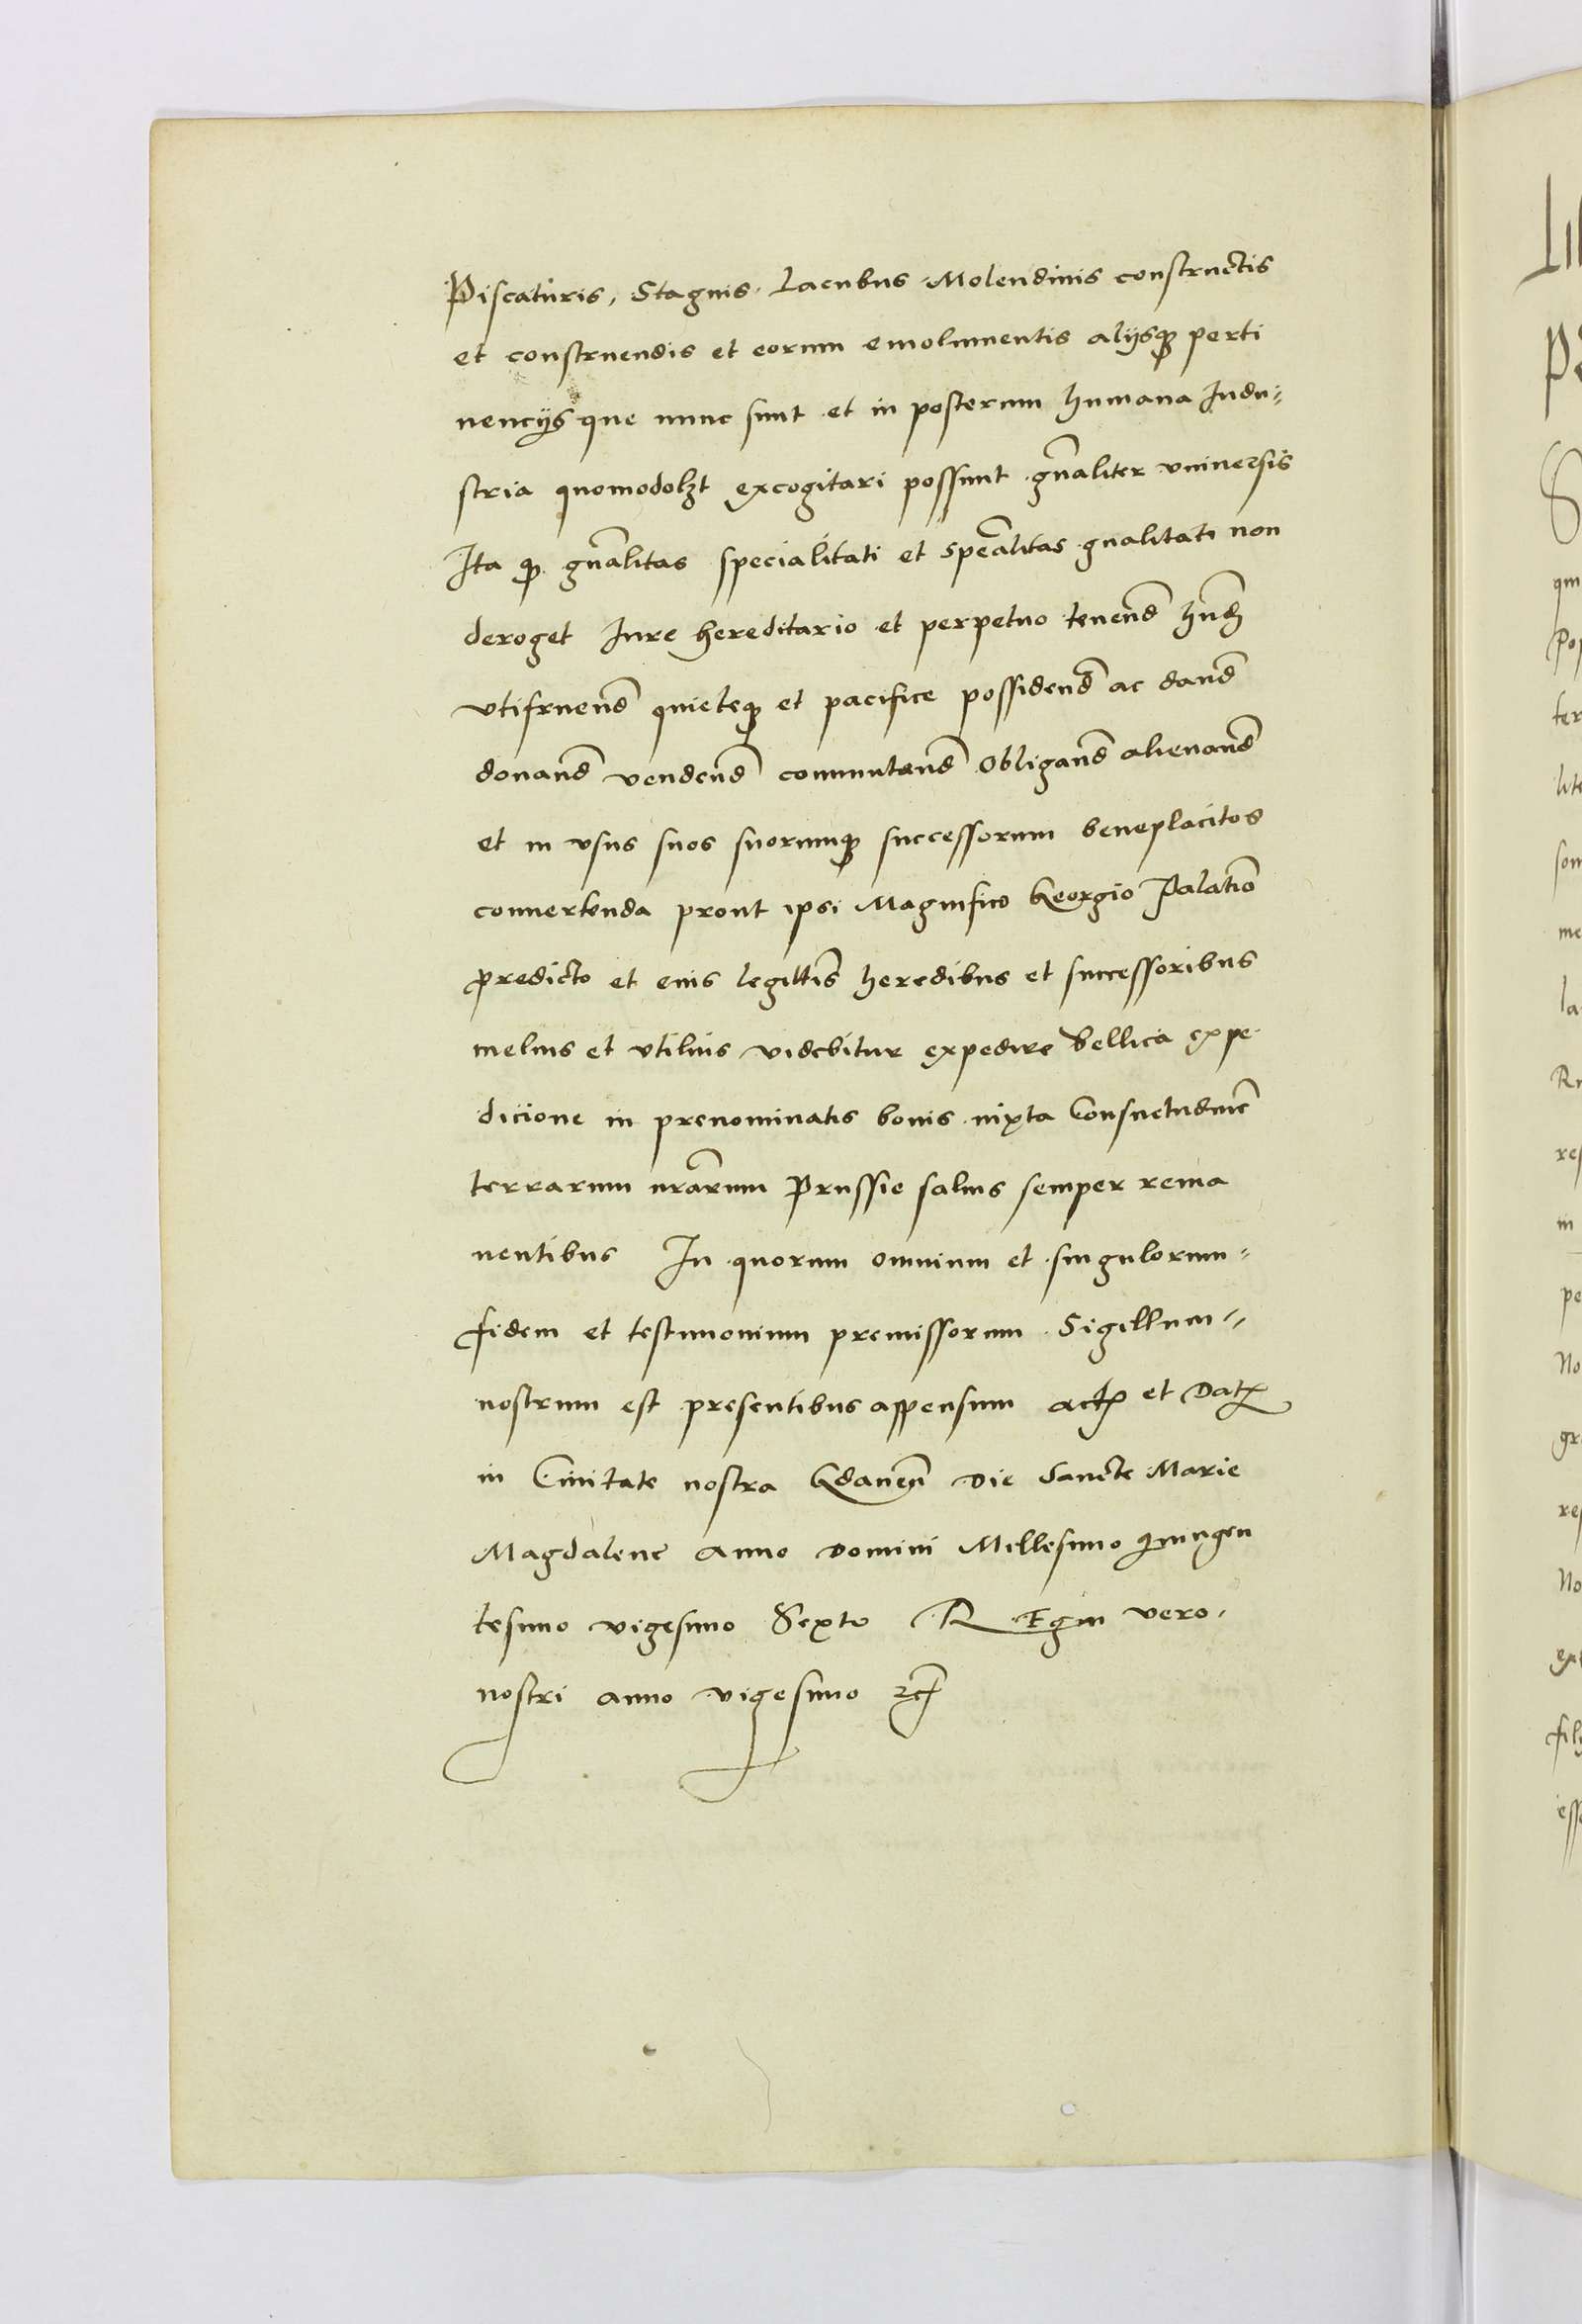 Piscaturis, Stagnis. Lacubus. Molendinis constructis
et construendis et eorum emolumentis alijsqꝫ perti
nencijs que nunc sunt et in posterum humana Indu⸗
stria quomodolꝫt excogitari possunt gñaliter vniuersis
Ita ꝙ gñalitas specialitati et speãlitas gnalitati non
deroget Iure hereditario et perpetuo tenend̃ hnd̃
vtifruend̃ quieteqꝫ et pacifice possidend̃ ac dand̃
donand̃ vendend̃ commutand̃ Obligand̃ alienand̃
et in vsus suos suorumqꝫ successorum beneplacitos
conuertenda prout ipsi Magnifico Georgio Palatĩo
predicto et eius legittĩs heredibus et successoribus
melius et vtilius videbitur expedire bellica expe
dicione in prenominatis bonis iuxta Consuetudinẽ
terrarum nr̃arum Prussie saluis semper rema
nentibus In quorum omnium et singulorum⸗
fidem et testimonium premissorum Sigillum⸗
nostrum est presentibus appensum actꝫ et Datꝫ
in Ciuitate nostra Gdaneñ Die Sancte Marie
Magdalene anno Domini Millesimo quingen
tesimo vigesimo Sexto REgni vero
nostri anno vigesimo ꝛc̃